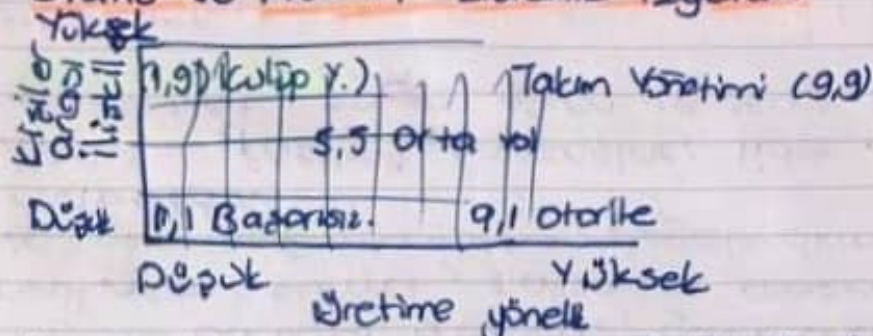 Yüksek
Kişiler arası ilişkil
1,9) (Kulüp Y.)
Takım Yönetimi (9,9)
5,5 Orta yol
Düşük
1,1 Başarısız.
9,1 otorite
Düşük
Yüksek
üretime yönelik